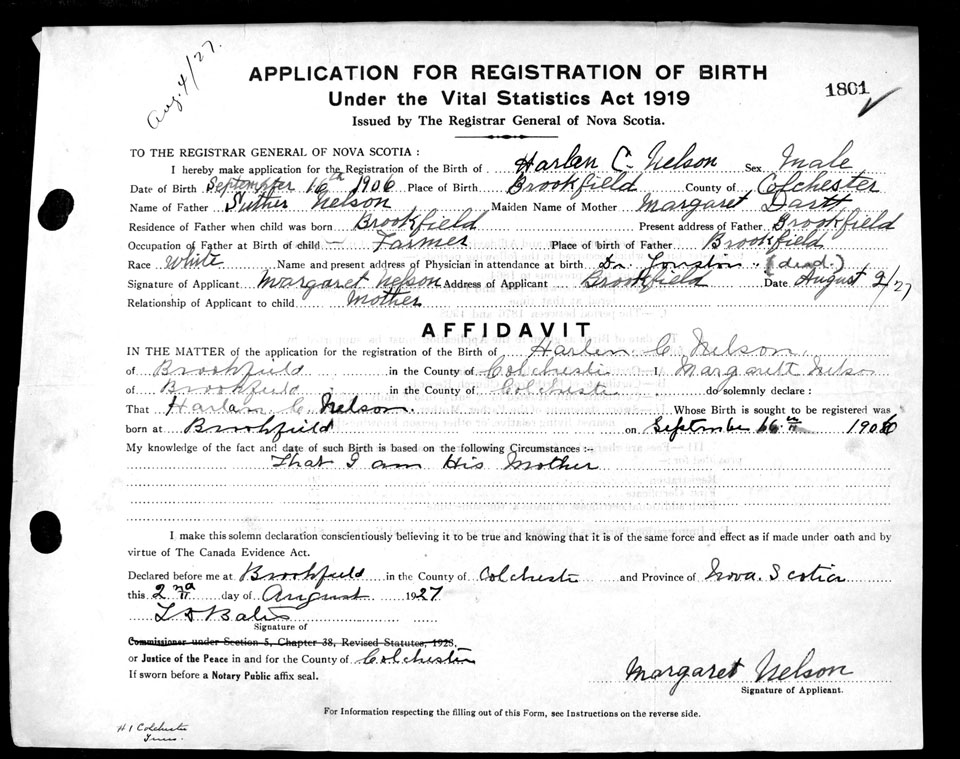 Aug. 4/27.
APPLICATION FOR REGISTRATION OF BIRTH
1801
Under the Vital Statistics Act 1919
Issued by The Registrar General of Nova Scotia.
TO THE REGISTRAR GENERAL OF NOVA SCOTIA :
I hereby make application for the Registration of the Birth of Harlan C. Nelson Sex Male
Date of Birth September 16th 1906 Place of Birth Brookfield County of Colchester
Name of Father Suther Nelson Maiden Name of Mother Margaret Dartt
Residence of Father when child was born Brookfield Present address of Father Brookfield
Occupation of Father at Birth of child — Farmer Place of birth of Father Brookfield
Race White Name and present address of Physician in attendance at birth Dr. (dead.)
Signature of Applicant Margaret Nelson Address of Applicant Brookfield Date August 2/27
Relationship of Applicant to child Mother
AFFIDAVIT
IN THE MATTER of the application for the registration of the Birth of Harlen C. Nelson
of Brookfield in the County of Colchester I, Margarett Nelson
of Brookfield in the County of Colchester do solemnly declare :
That Harlan C. Nelson. Whose Birth is sought to be registered was
born at Brookfield on September 16th 1906
My knowledge of the fact and date of such Birth is based on the following Circumstances :-
That I am His Mother
I make this solemn declaration conscientiously believing it to be true and knowing that it is of the same force and effect as if made under oath and by
virtue of The Canada Evidence Act.
Declared before me at Brookfield in the County of Colchester and Province of Nova Scotia
this 2nd day of August 1927
Signature of
Commissioner under Section 5, Chapter 38, Revised Statutes, 1923,
or Justice of the Peace in and for the County of Colchester
If sworn before a Notary Public affix seal.
Margaret Nelson
Signature of Applicant.
For Information respecting the filling out of this Form, see Instructions on the reverse side.
H 1 Colchester